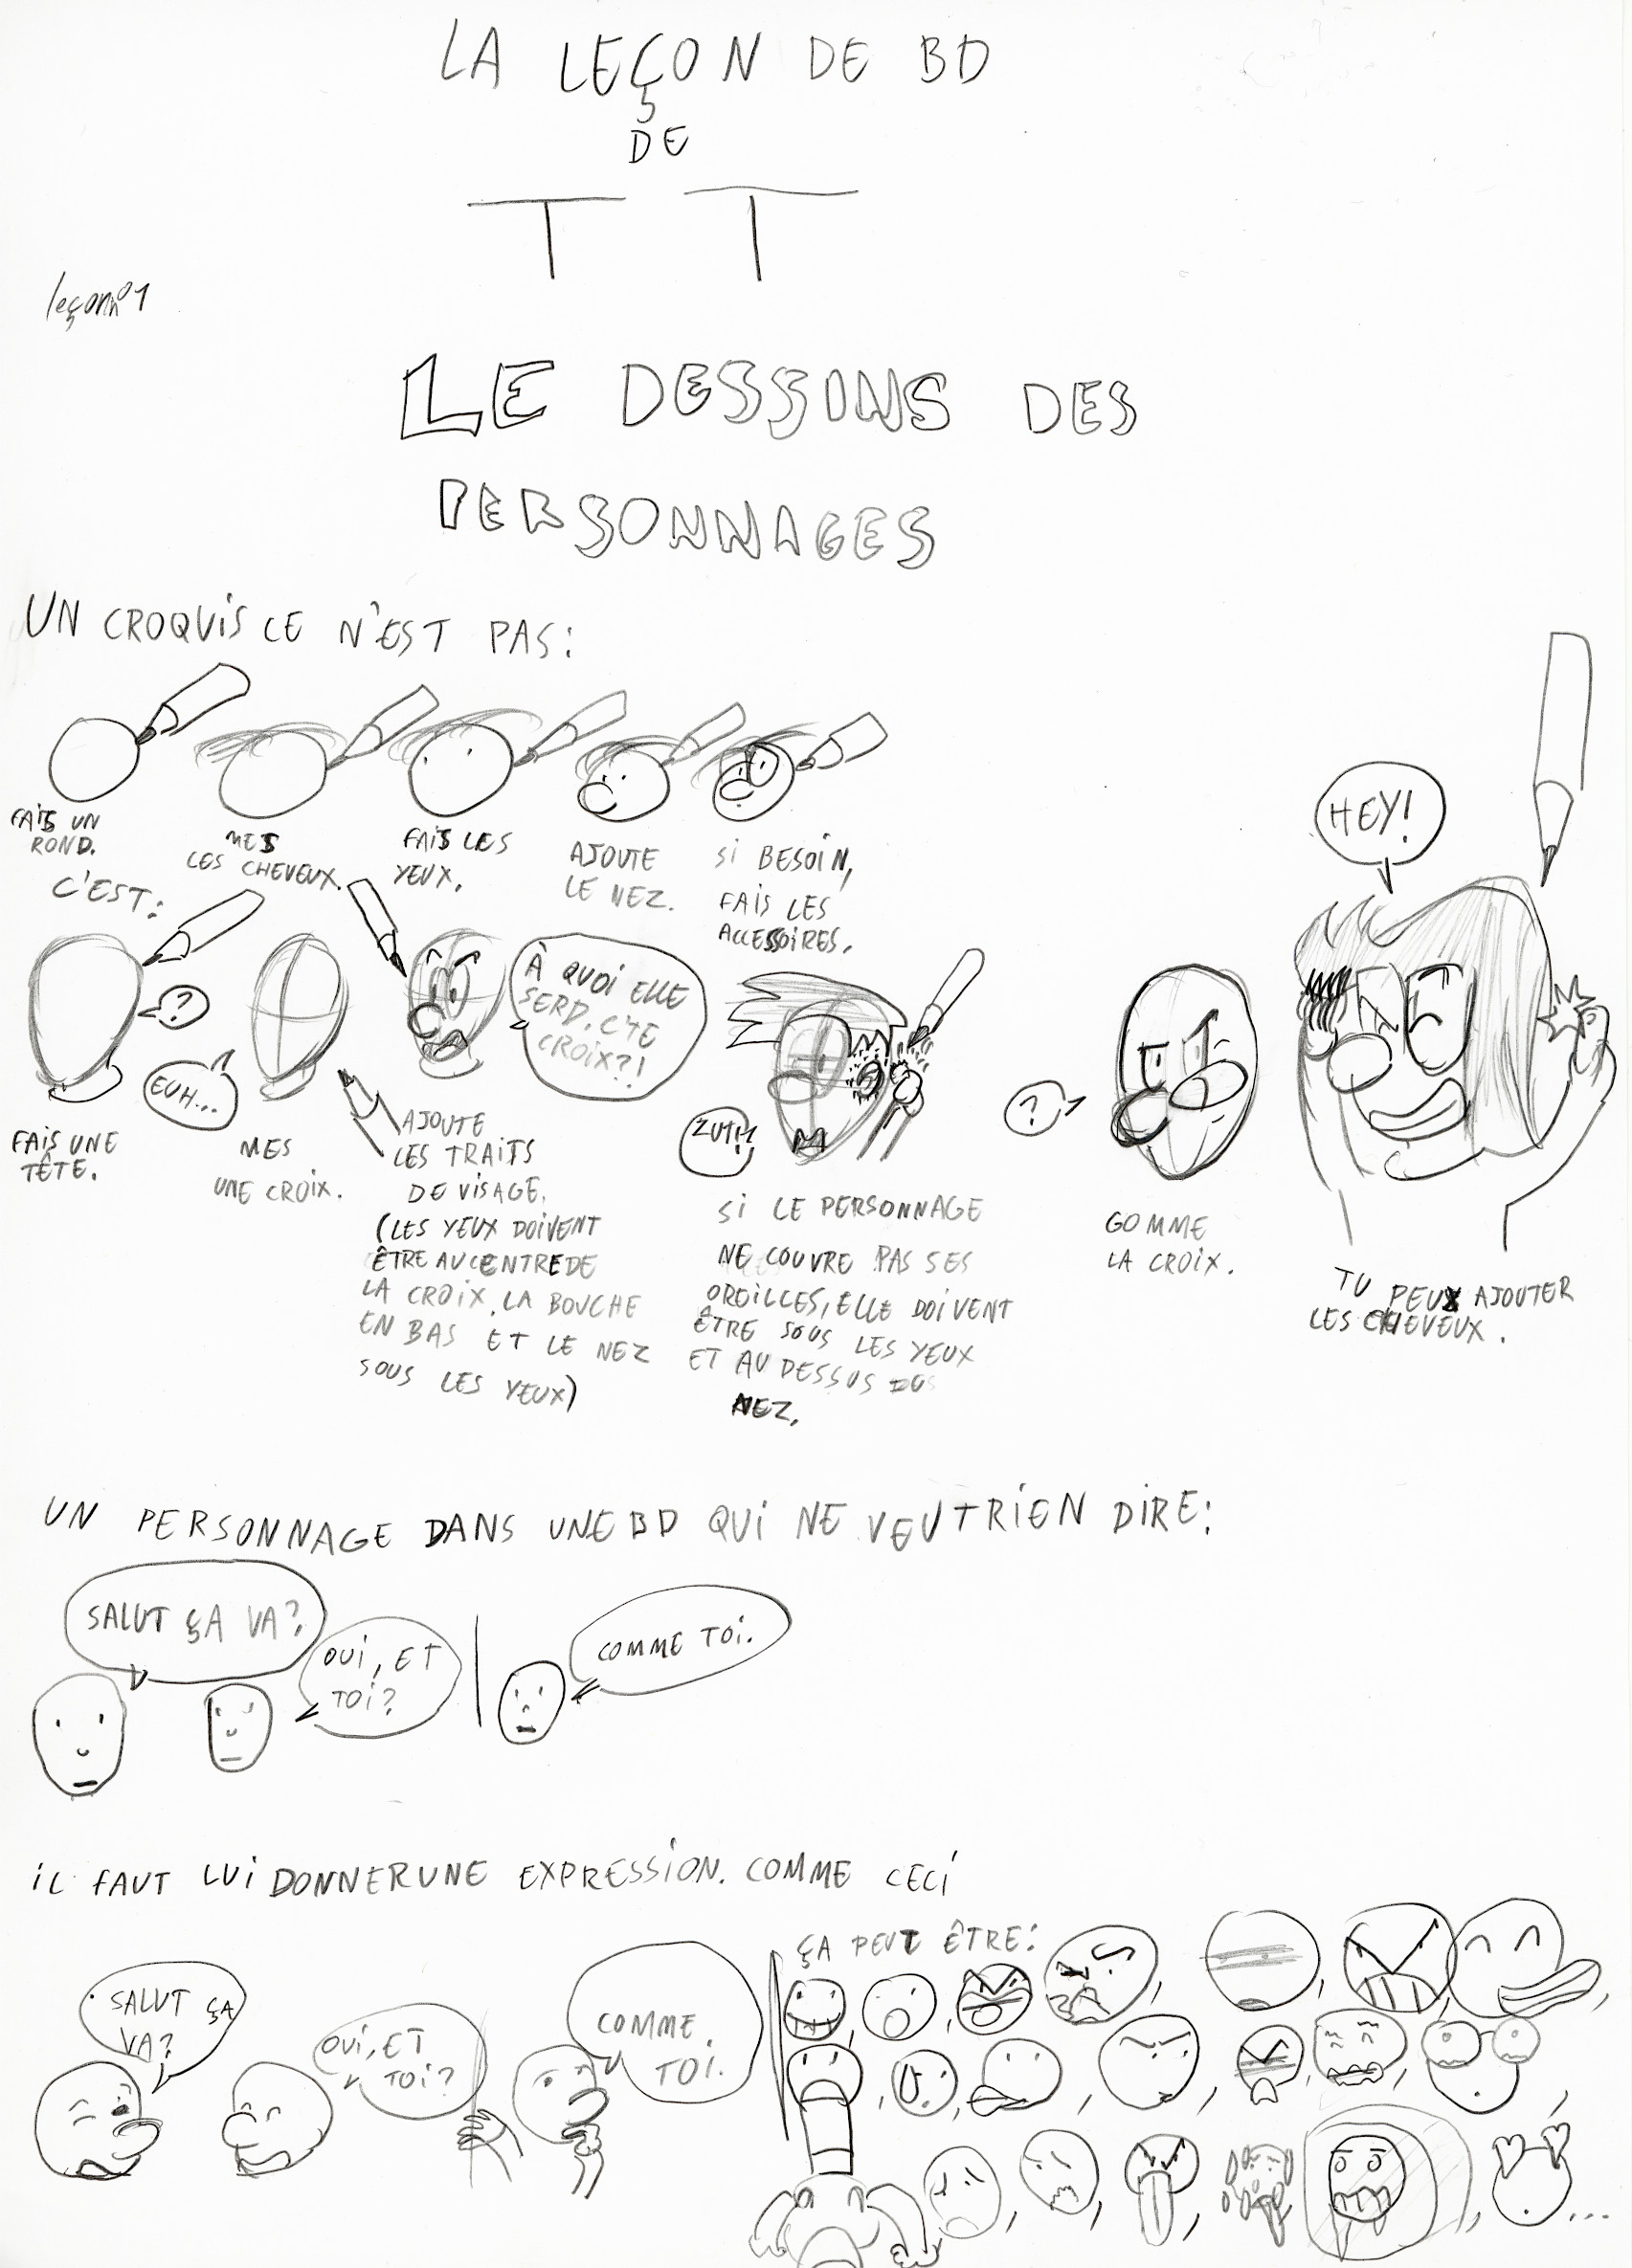 LA LEÇON DE BD
DE
TT
leçon n°1
LE DESSINS DES
PERSONNAGES
UN CROQUIS CE N'EST PAS:
FAIS UN
ROND.
MES
LES CHEVEUX.
FAIS LES
YEUX.
AJOUTE
LE NEZ.
SI BESOIN,
FAIS LES
ACCESSOIRES.
HEY!
C'EST:
?
EUH...
À QUOI ELLE
SERD, C'TE
CROIX?!
ZUT!!
?
FAIS UNE
TÊTE.
MES
UNE CROIX.
AJOUTE
LES TRAITS
DE VISAGE.
(LES YEUX DOIVENT
ÊTRE AU CENTRE DE
LA CROIX, LA BOUCHE
EN BAS ET LE NEZ
SOUS LES YEUX)
SI LE PERSONNAGE
NE COUVRE PAS SES
OREILLES, ELLE DOIVENT
ÊTRE SOUS LES YEUX
ET AU DESSUS DU
NEZ.
GOMME
LA CROIX.
TU PEUX AJOUTER
LES CHEVEUX.
UN PERSONNAGE DANS UNE BD QUI NE VEUT RIEN DIRE:
SALUT ÇA VA?
OUI, ET
TOI?
COMME TOI.
IL FAUT LUI DONNER UNE EXPRESSION. COMME CECI
SALUT ÇA
VA?
OUI, ET
TOI?
COMME
TOI.
ÇA PEUT ÊTRE:
...